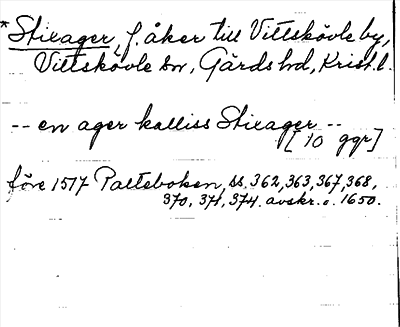 *Stieager, f. åker till Vittskövle by,
Vittskövle sn, Gärds hd, Krist. l.
-- en ager kalliss Stieager --
[10 ggr]
före 1517 Palteboken, ss. 362, 363, 367, 368,
370, 371, 374. avskr. o. 1650.